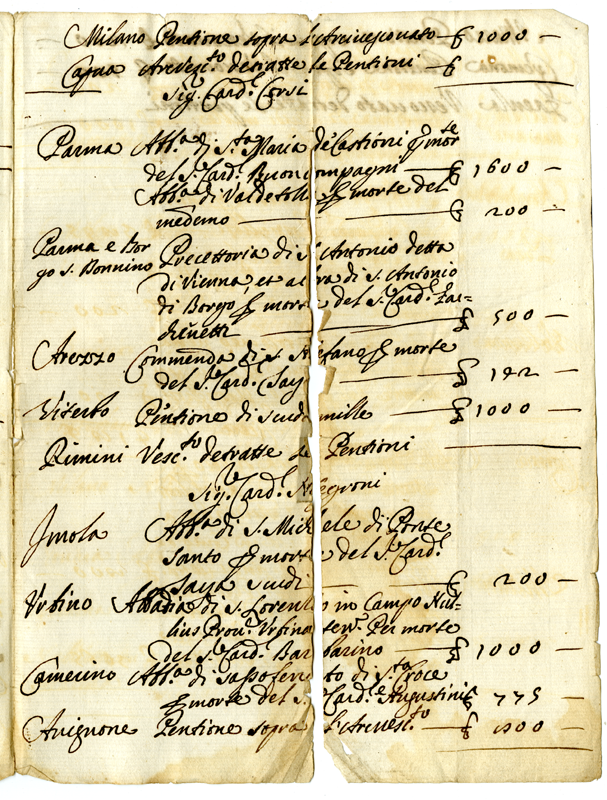 Milano Pentione sopra l'Arcivescovato — £ 1000 —
Capua Arcivesc.to detratte le Pentioni — £
Sig.r Card.l Corsi
Parma Abb.a di S.ta Maria de Castioni per morte
del S.r Card.l Buoncompagni — £ 1600 —
Abb.a di Valdetolla per morte del
medemo — £ 200 —
Parma e Bor Precettoria di S. Antonio detta
go S. Donnino di Vienna, et altra di S. Antonio
di Borgo per morte del S.r Card.l Fac=
chinetti — £ 500 —
Arezzo Commenda di S. Stefano per morte
del S.r Card.l Saya — £ 192 —
Viterbo Pentione di scudi mille — £ 1000 —
Rimini Vesc.to detratte le Pentioni
Sig.r Card.l Negroni
Imola Abb.a di S. Michele di Ponte
Santo per morte del S.r Card.l
Saya scudi — £ 200 —
Urbino Abbadia di S. Lorenzo in Campo Nul=
lius Prov.e Urbinaten. Per morte
del S.r Card.l Barbarino — £ 1000 —
Camerino Abb.a di Sassoferrato di S.ta Croce
per morte del S. Card.e Augustini £ 775 —
Avignone Pentione sopra l'Arcivesc.to — £